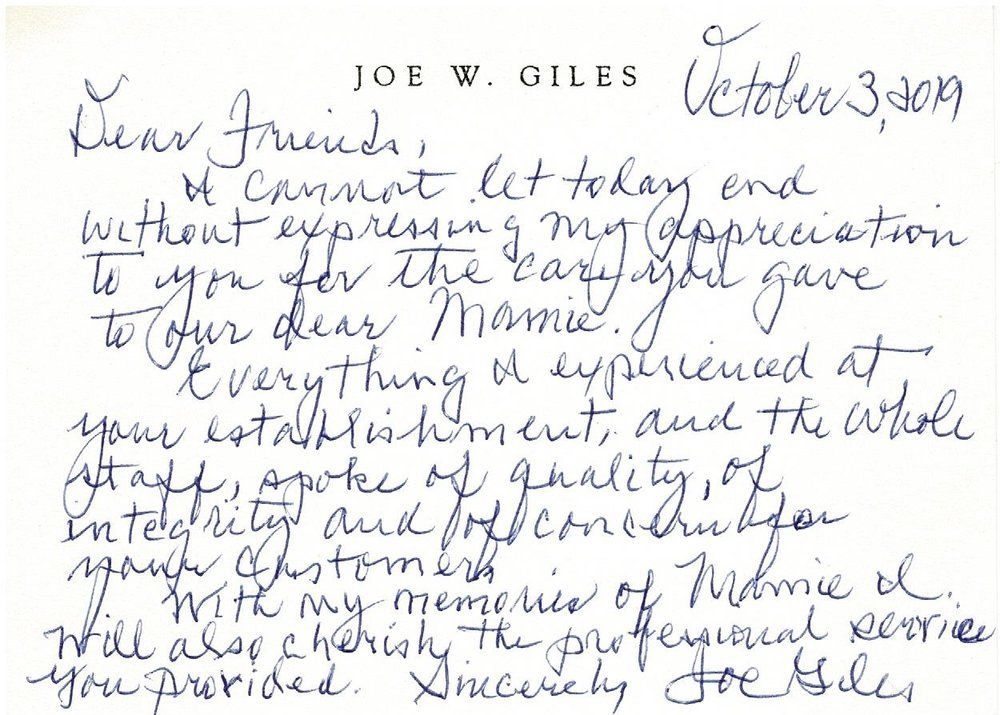 JOE W. GILES
October 3, 2019
Dear Friends,
I cannot let today end
without expressing my appreciation
to you for the care you gave
to our dear Mamie.
Everything I experienced at
your establishment, and the whole
staff, spoke of quality, of
integrity and of concern for
your customers
With my memories of Mamie I
will also cherish the professional service
you provided. Sincerely, Joe Giles